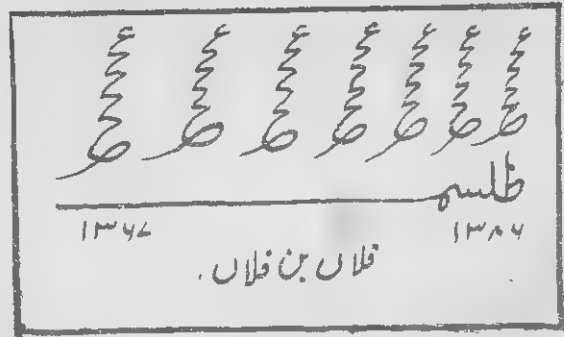 طلسم
۱۳۸۶ ۱۳۶۷
فلاں بن فلاں۔